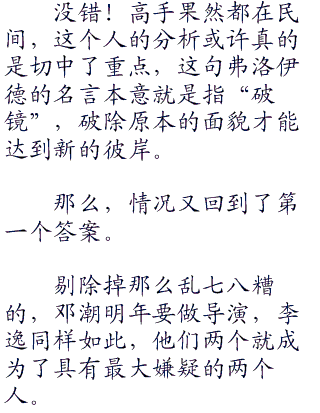 没错！高手果然都在民
间，这个人的分析或许真的
是切中了重点，这句弗洛伊
德的名言本意就是指“破
镜”，破除原本的面貌才能
达到新的彼岸。
那么，情况又回到了第
一个答案。
剔除掉那么乱七八糟
的，邓潮明年要做导演，李
逸同样如此，他们两个就成
为了具有最大嫌疑的两个
人。